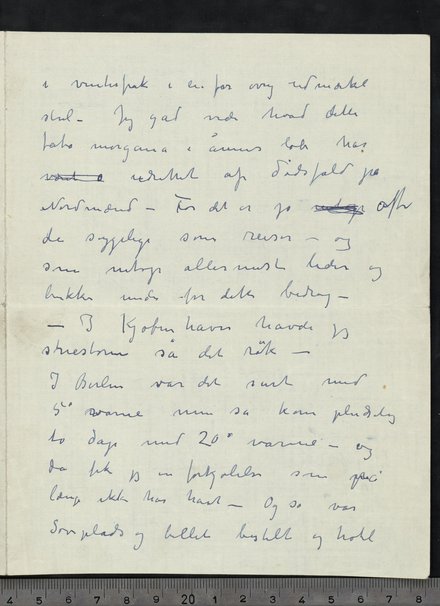 i vinterfrak i en for øvrig udmærket
stol – Jeg gad vide hvad dette
fata morgana i årenes løb har
udrettet af dødsfald på
Nordmænd – For det er jo ofte
de sygelige som reiser – og
som netop allermest lider og
bukker under for dette bedrag –
– I Kjøbenhavn havde jeg
snestorm så det røk –
I Berlin var det surt med
5° varme men så kom pludselig
to dage med 20° varme – og
da fik jeg en forkjølelse som på
længe ikke har havt – Og så var
Soveplads og billet bestilt og hotel
4 5 6 7 8 9 20 1 2 3 4 5 6 7 8